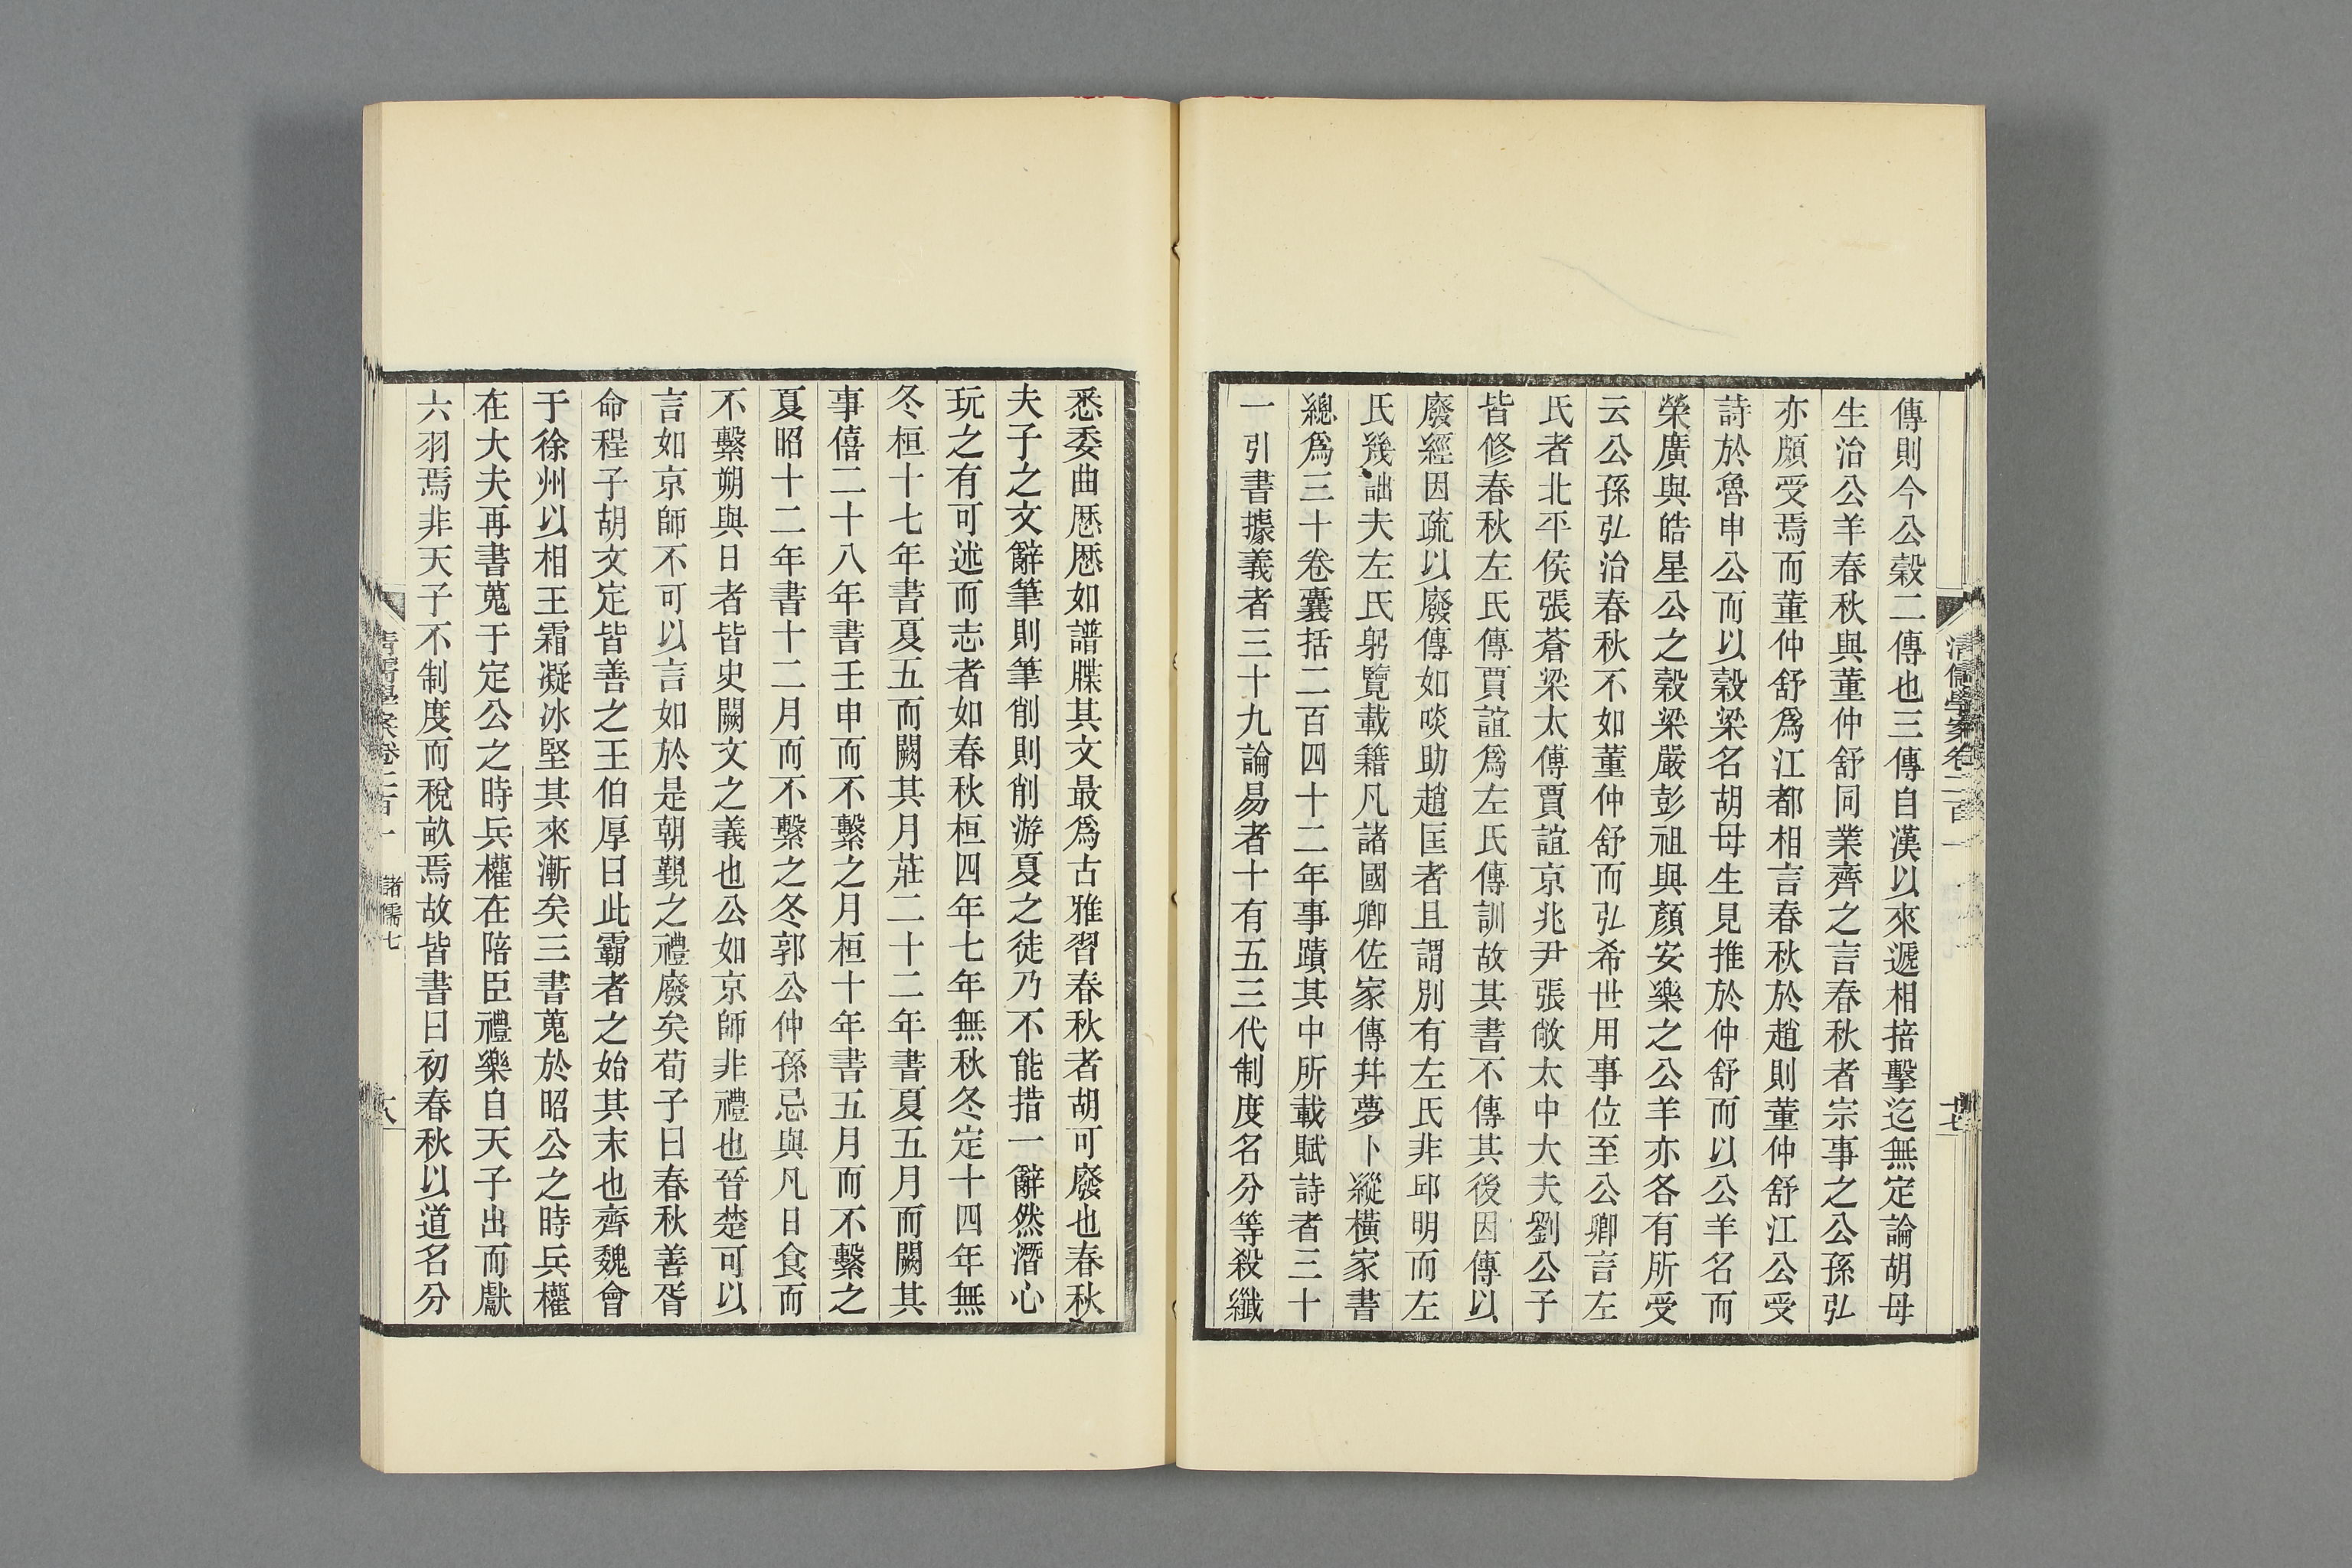 清儒學案卷二百一
十七
傳則今公穀二傳也三傳自漢以來遞相掊擊迄無定論胡母
生治公羊春秋與董仲舒同業齊之言春秋者宗事之公孫弘
亦頗受焉而董仲舒爲江都相言春秋於趙則董仲舒江公受
詩於魯申公而以穀梁名胡母生見推於仲舒而以公羊名而
榮廣與皓星公之穀梁嚴彭祖與顏安樂之公羊亦各有所受
云公孫弘治春秋不如董仲舒而弘希世用事位至公卿言左
氏者北平侯張蒼梁太傅賈誼京兆尹張敞太中大夫劉公子
皆修春秋左氏傳賈誼爲左氏傳訓故其書不傳其後因傳以
廢經因疏以廢傳如啖助趙匡者且謂別有左氏非邱明而左
氏幾詘夫左氏躬覽載籍凡諸國卿佐家傳幷夢卜縱橫家書
總爲三十卷囊括二百四十二年事蹟其中所載賦詩者三十
一引書據義者三十九論易者十有五三代制度名分等殺纖
悉委曲歷歷如譜牒其文最爲古雅習春秋者胡可廢也春秋
夫子之文辭筆則筆削則削游夏之徒乃不能措一辭然潛心
玩之有可述而志者如春秋桓四年七年無秋冬定十四年無
冬桓十七年書夏五而闕其月莊二十二年書夏五月而闕其
事僖二十八年書壬申而不繫之月桓十年書五月而不繫之
夏昭十二年書十二月而不繫之冬郭公仲孫忌與凡日食而
不繫朔與日者皆史闕文之義也公如京師非禮也晉楚可以
言如京師不可以言如於是朝覲之禮廢矣荀子曰春秋善胥
命程子胡文定皆善之王伯厚曰此霸者之始其末也齊魏會
于徐州以相王霜凝冰堅其來漸矣三書蒐於昭公之時兵權
在大夫再書蒐于定公之時兵權在陪臣禮樂自天子出而獻
六羽焉非天子不制度而稅畝焉故皆書曰初春秋以道名分
清儒學案卷二百一 諸儒七
十八